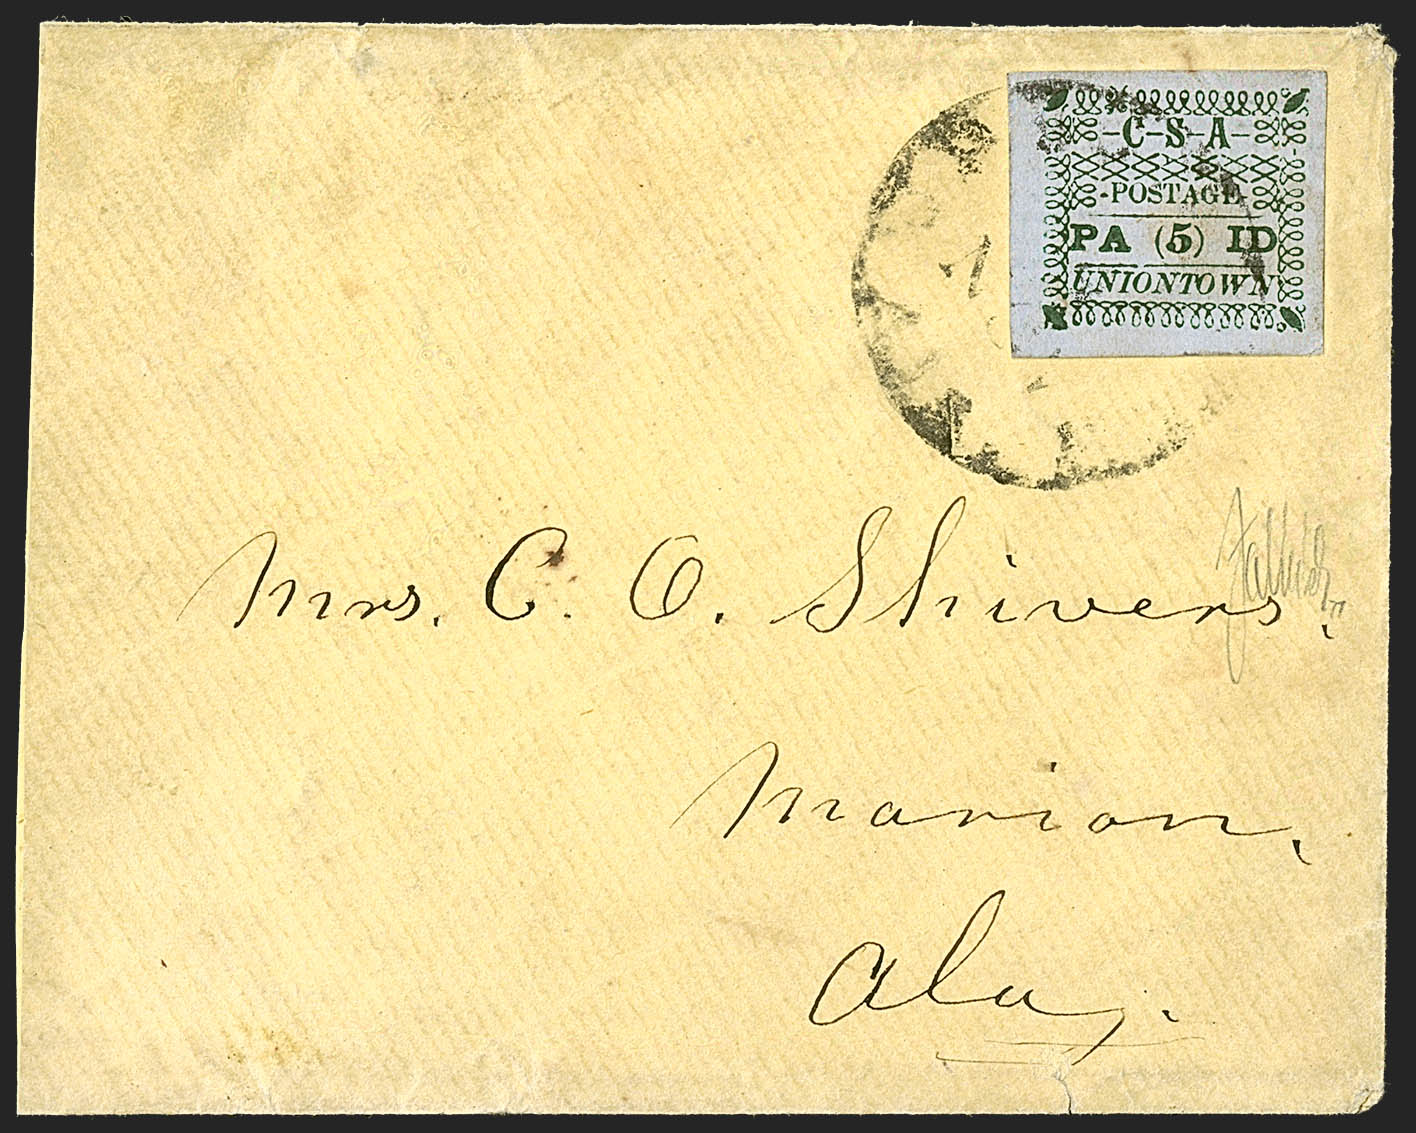 -C-S-A-
-POSTAGE-
PA (5) ID
UNIONTOWN
Mrs. C. O. Shivers.
Marion,
Ala.